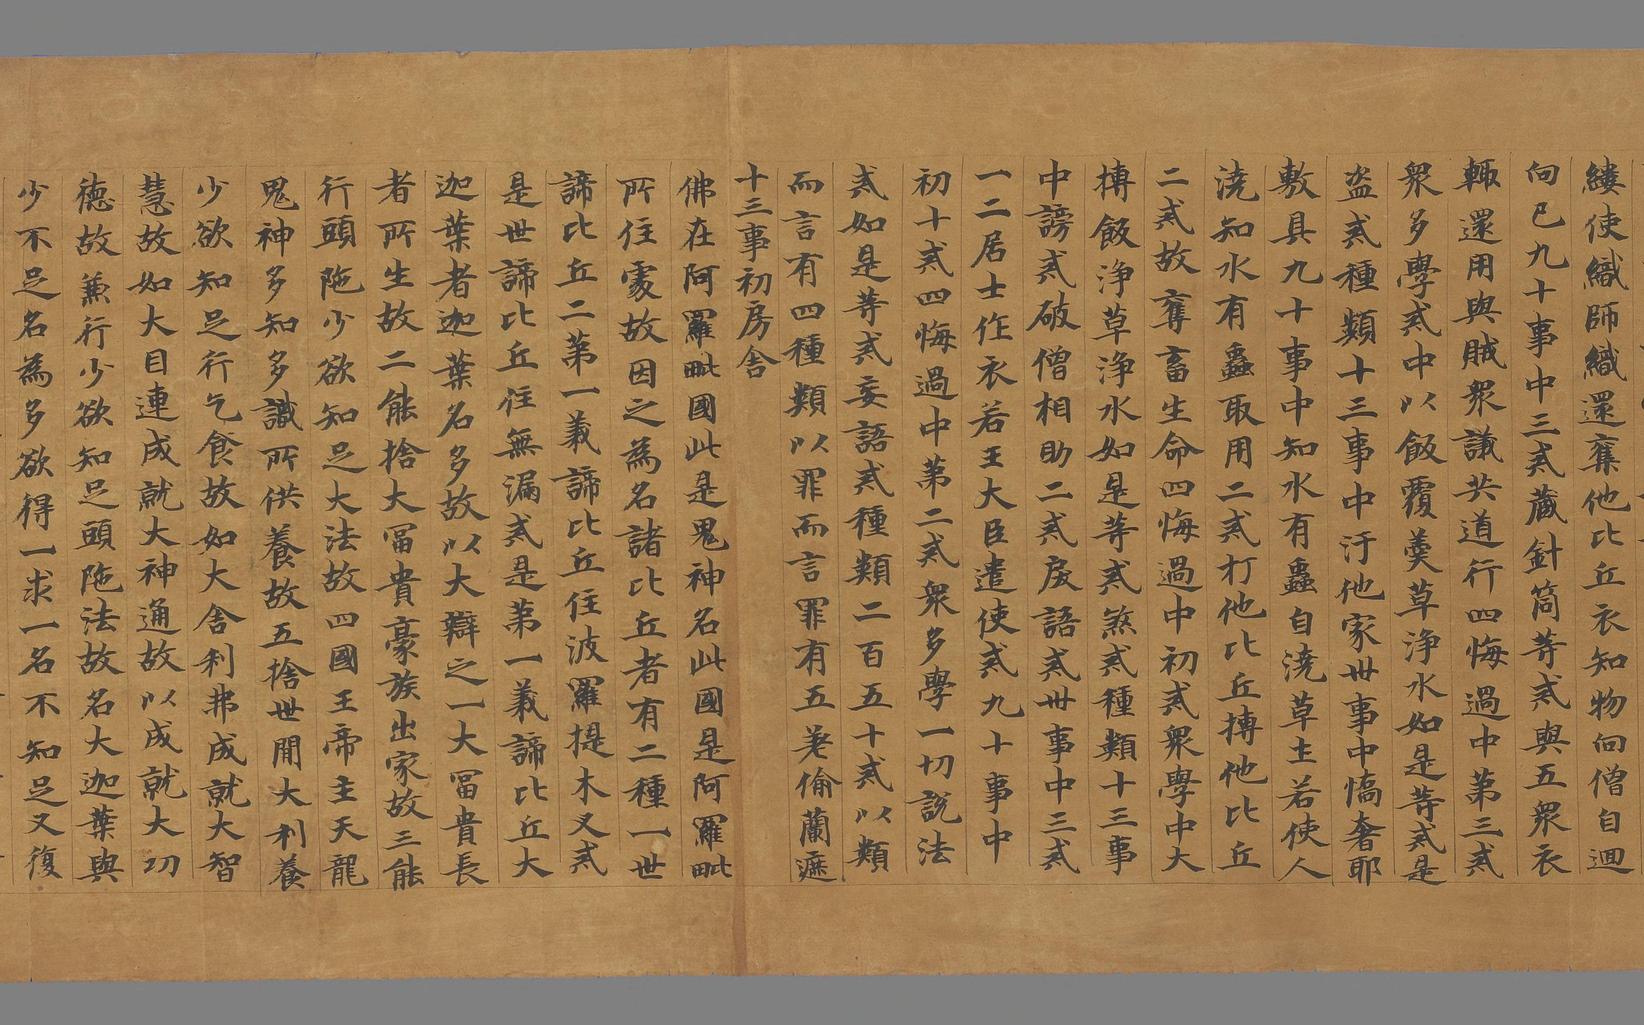 縷使織師織還奪他比丘衣知物向僧自迴
向已九十事中三貳藏針筒等貳與五衆衣
輙還用與賊衆議共道行四悔過中第三貳
衆多學貳中以飯覆羹草淨水如是等貳是
盗貳種類十三事中汙他家丗事中憍奢耶
敷具九十事中知水有蟲自澆草土若使人
澆知水有蟲取用二貳打他比丘搏他比丘
二貳故奪畜生命四悔過中初貳衆學中大
摶飯淨草淨水如是等貳煞貳種類十三事
中謗貳破僧相助二貳戾語貳丗事中三貳
一二居士作衣若王大臣遣使貳九十事中
初十貳四悔過中第二貳衆多學一切説法
貳如是等貳妄語貳種類二百五十貳以類
而言有四種類以罪而言罪有五差偷蘭遮
十三事初房舍
佛在阿羅毗國此是鬼神名此國是阿羅毗
所住處故因之為名諸比丘者有二種一世
諦比丘二第一義諦比丘住波羅提木叉貳
是世諦比丘住無漏貳是第一義諦比丘大
迦葉者迦葉名多故以大辯之一大冨貴長
者所生故二能捨大冨貴豪族出家故三能
行頭陁少欲知足大法故四國王帝主天龍
鬼神多知多識所供養故五捨世間大利養
少欲知足行乞食故如大舍利弗成就大智
慧故如大目連成就大神通故以成就大功
德故兼行少欲知足頭陁法故名大迦葉與
少不足名為多欲得一求一名不知足又復